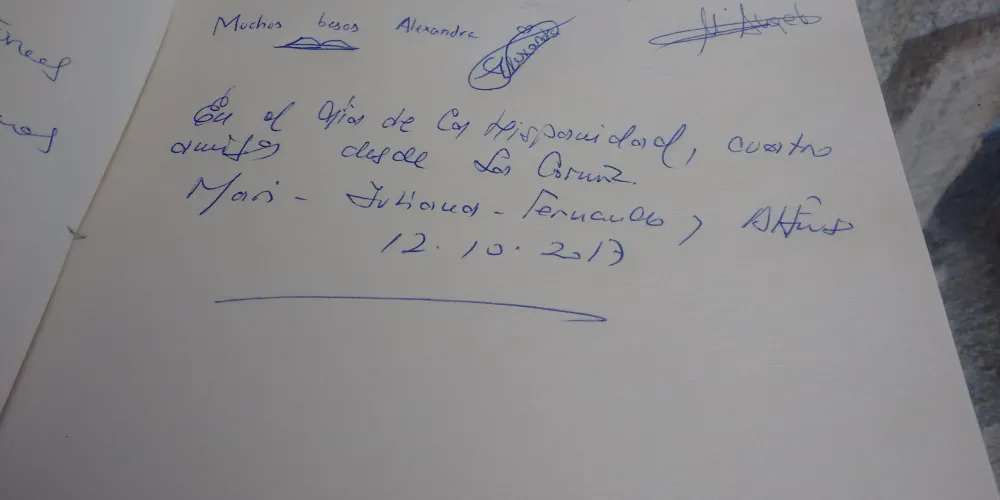 Muchos besos Alexandra Alexandra
En el día de la Hispanidad, cuatro
amigos desde La Coruña.
Mari - Juliana - Fernando y
12.10.2017